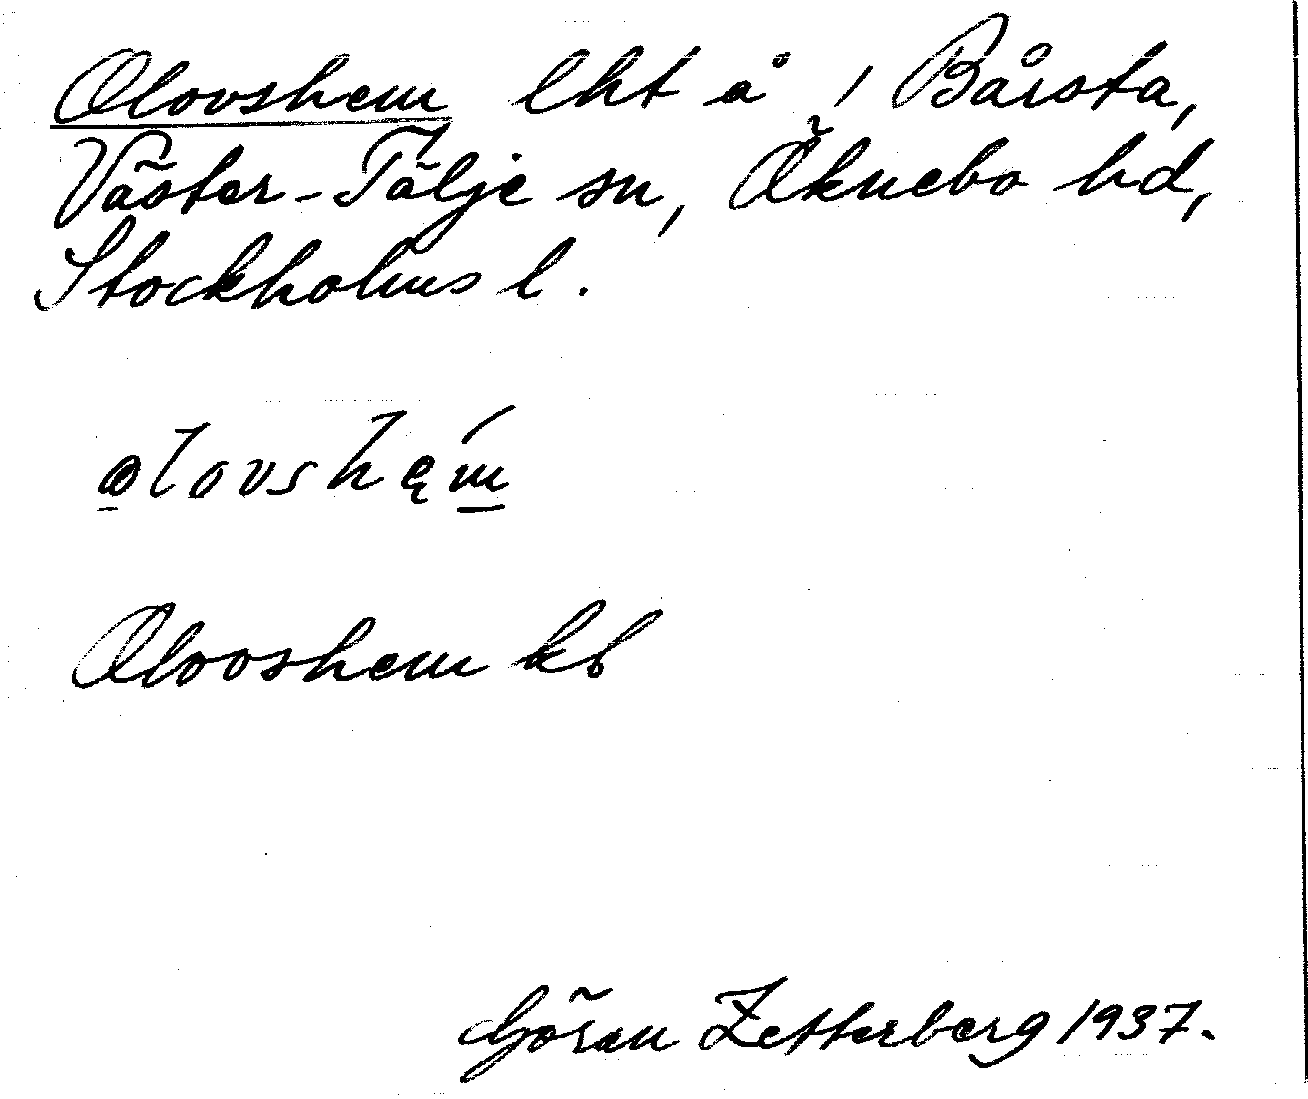 Olovshem lht å 1 Bårsta,
Väster-Tälje sn, Öknebo hd,
Stockholms l.
olovshem
Olovshem kb
Göran Zetterberg 1937.